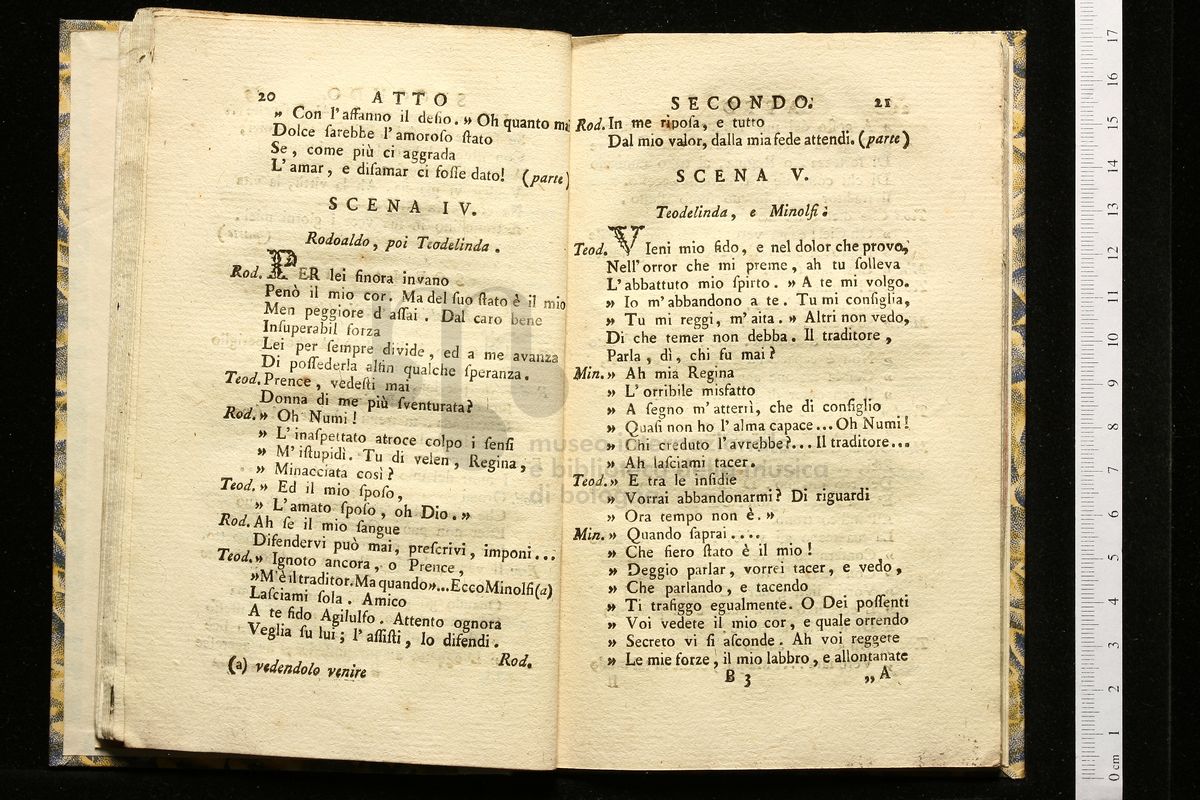 20 ATTO
» Con l'affanno il desio. » Oh quanto mai
Dolce sarebbe l'amoroso stato
Se, come più ci aggrada
L'amar, e disamar ci fosse dato! (parte)
SCENA IV.
Rodoaldo, poi Teodelinda.
Rod. PER lei finora invano
Penò il mio cor. Ma del suo stato è il mio
Men peggiore d'assai. Dal caro bene
Insuperabil forza
Lei per sempre divide, ed a me avanza
Di possederla alfin qualche speranza.
Teod. Prence, vedesti mai
Donna di me più sventurata?
Rod. » Oh Numi!
» L'inaspettato atroce colpo i sensi
» M'istupidì. Tu di velen, Regina,
» Minacciata così?
Teod. » Ed il mio sposo,
» L'amato sposo, oh Dio. »
Rod. Ah se il mio sangue
Difendervi può mai, prescrivi, imponi...
Teod. » Ignoto ancora, o Prence,
»M'è il traditor. Ma quando»...Ecco Minolfi (a)
Lasciami sola. Amico
A te fido Agilulfo. Attento ognora
Veglia su lui; l'assisti, lo difendi.
Rod.
(a) vedendolo venire
SECONDO. 21
Rod. In me riposa, e tutto
Dal mio valor, dalla mia fede attendi. (parte)
SCENA V.
Teodelinda, e Minolfi.
Teod. VIeni mio fido, e nel dolor che provo,
Nell'orror che mi preme, ah tu solleva
L'abbattuto mio spirto. » A te mi volgo.
» Io m'abbandono a te. Tu mi consiglia,
» Tu mi reggi, m'aita. » Altri non vedo,
Di che temer non debba. Il traditore,
Parla, dì, chi fu mai?
Min. » Ah mia Regina
» L'orribile misfatto
» A segno m'atterrì, che di consiglio
» Quasi non ho l'alma capace... Oh Numi!
» Chi creduto l'avrebbe?... Il traditore...
» Ah lasciami tacer.
Teod. » E tra le insidie
» Vorrai abbandonarmi? Di riguardi
» Ora tempo non è. »
Min. » Quando saprai....
» Che fiero stato è il mio!
» Deggio parlar, vorrei tacer, e vedo,
» Che parlando, e tacendo
» Ti trafiggo egualmente. O Dei possenti
» Voi vedete il mio cor, e quale orrendo
» Secreto vi si asconde. Ah voi reggete
» Le mie forze, il mio labbro, e allontanate
B 3 „ A